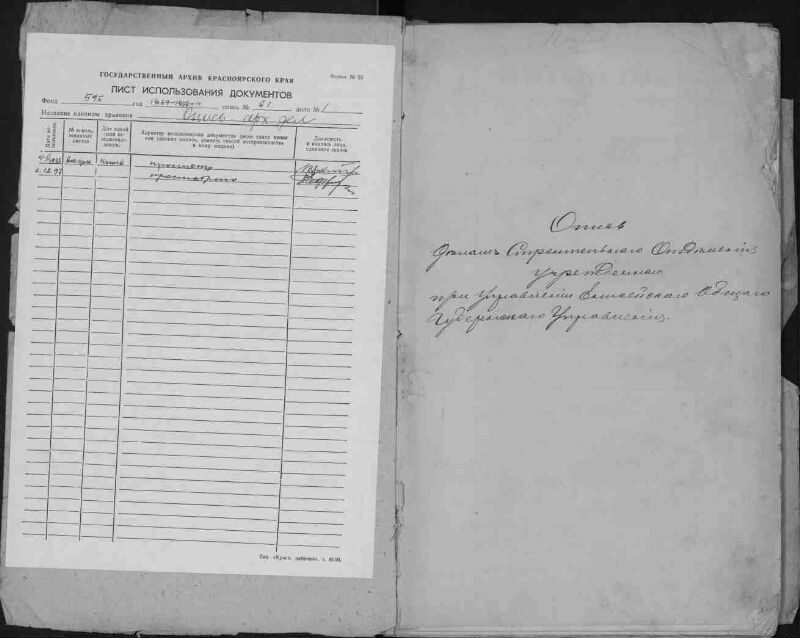 ГОСУДАРСТВЕННЫЙ АРХИВ КРАСНОЯРСКОГО КРАЯ
Форма № 23
ЛИСТ ИСПОЛЬЗОВАНИЯ ДОКУМЕНТОВ
Фонд 595 год опись № 61 дело № 1
Название единицы хранения Опись арх дел
Дата использования
№ использованных листов
Для какой цели использованы докум.
Характер использования документов (если снята копия или сделана выпись, указать способ воспроизведения и кому выдана)
Должность и подпись лица,
просмотр
2.12.97 просмотрено
Тип. «Красн. рабочий», з.
Опись
Дѣламъ Строительнаго Отдѣленія
учрежденнаго
при Управленіи Енисейскаго Общаго
Губернскаго Управленія.